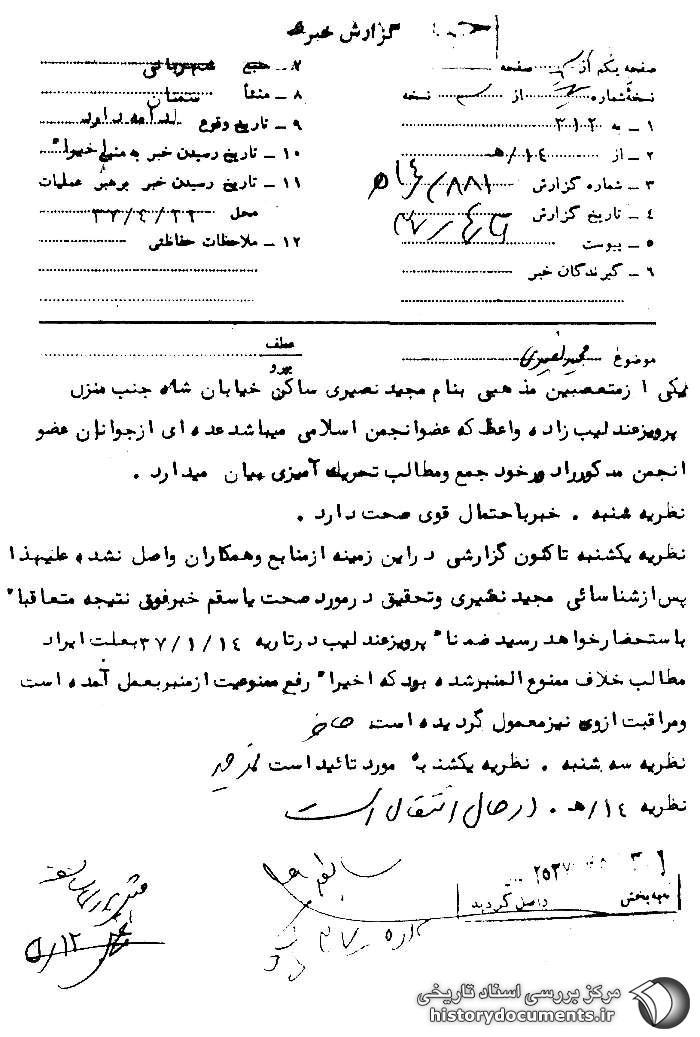 گزارش خبر
صفحه یکم از صفحه
نسخه شماره از نسخه
۱ ـ به ۳۱۲
۲ ـ از ۱۴/ه‍
۳ ـ شماره گزارش
۴ ـ تاریخ گزارش
۵ ـ پیوست
۶ ـ گیرندگان خبر
۷ ـ
۸ ـ منشأ
۹ ـ تاریخ وقوع ادامه دارد
۱۰ ـ تاریخ رسیدن خبر به منبع اخیرا"
۱۱ ـ تاریخ رسیدن خبر برهبر عملیات
محل ۳۷/۴/۲۲
۱۲ ـ ملاحظات حفاظتی
موضوع مجید نصیری
عطف
پیرو
یکی ازمتعصبین مذهبی بنام مجید نصیری ساکن خیابان شاه جنب منزل
پرویز عند لیب زاده واعظ که عضو انجمن اسلامی میباشد عده ای ازجوانان عضو
انجمن مذکور راد ورخود جمع ومطالب تحریک آمیزی بیان میدارد .
نظریه شنبه . خبر باحتمال قوی صحت دارد .
نظریه یکشنبه تاکنون گزارشی دراین زمینه ازمنابع وهمکاران واصل نشده علیهذا
پس ازشناسائی مجید نصیری وتحقیق درمورد صحت یاسقم خبرفوق نتیجه متعاقبا"
باستحضار خواهد رسید ضمنا" پرویز عند لیب درتاریه ۳۷/۱/۱۴ بعلت ایراد
مطالب خلاف ممنوع المنبر شده بود که اخیرا" رفع ممنوعیت ازمنبر بعمل آمده است
ومراقبت ازوی نیز معمول گردیده است.
نظریه سه شنبه . نظریه یکشنبه مورد تائید است
نظریه ۱۴/ه‍ . در حال انتقال است
به بخش واصل گردید
مرکز بررسی اسناد تاریخی
historydocuments.ir